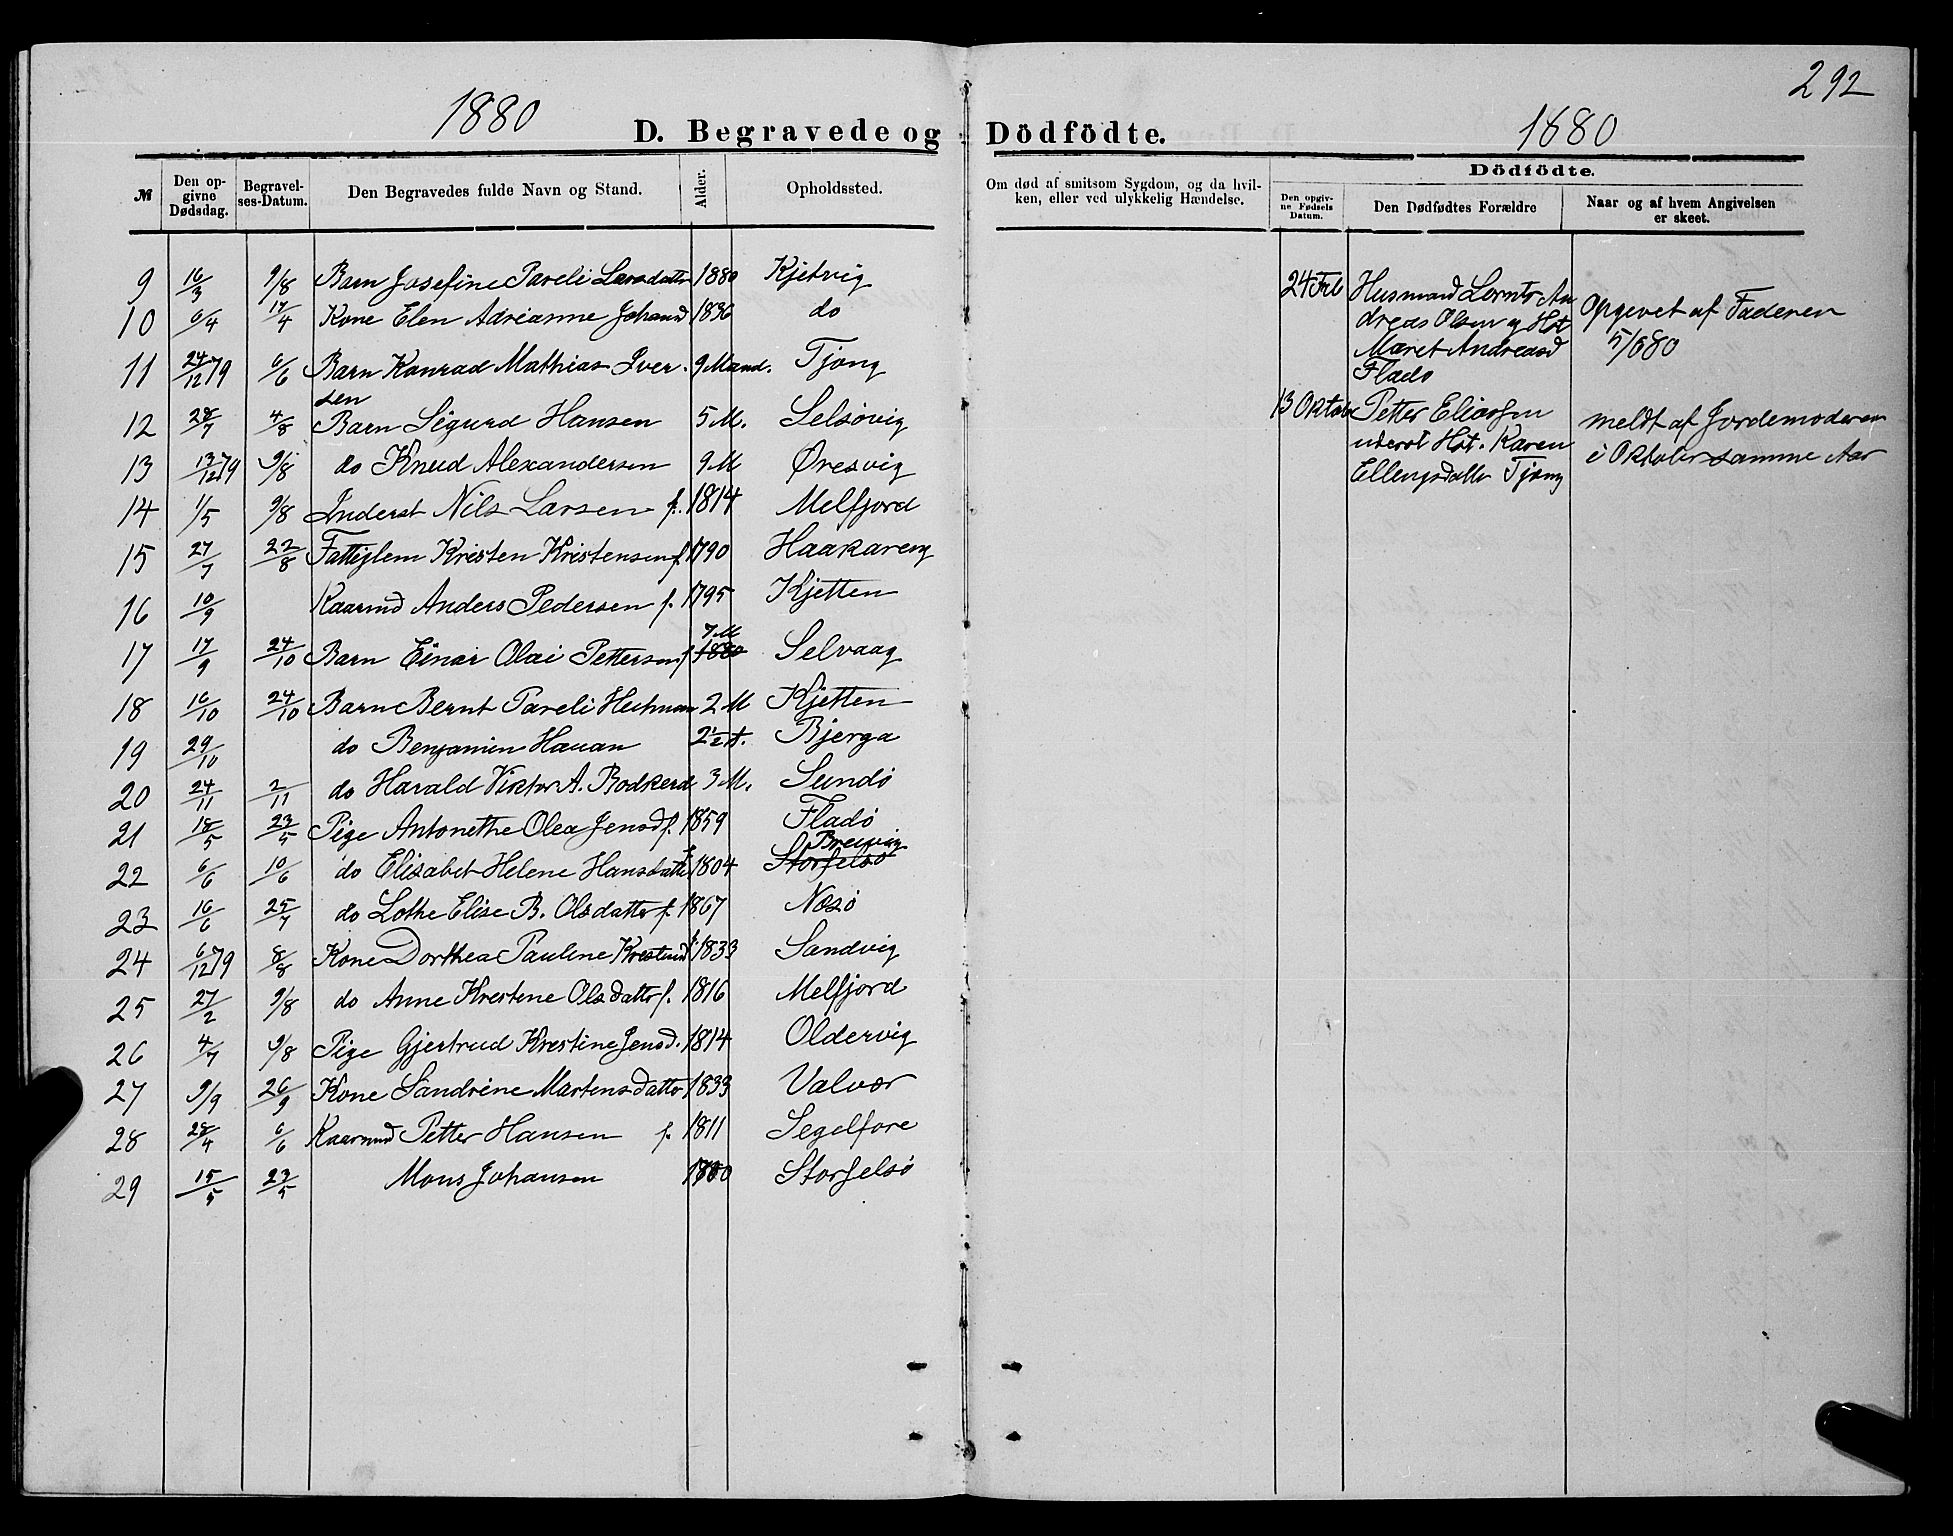 292
1880
D. Begravede og Dödfödte.
1880
№
Den opgivne Dødsdag.
Begravelses-Datum.
Den Begravedes fulde Navn og Stand.
Alder.
Opholdssted.
Om død af smitsom Sygdom, og da hvilken, eller ved ulykkelig Hændelse.
Dödfödte.
Den opgivne Fødsels Datum.
Den Dødfødtes Forældre
Naar og af hvem Angivelsen er skeet.
9 16/3 9/8 Barn Josefine Pareli Larsdatter 1880 Kjelvig
10 6/4 17/4 Kone Elen Adrianne Johansd 1836 do
11 24/12 79 6/6 Barn Konrad Mathias Iver- 9 Maand. Tjong
sen
12 28/7 4/8 Barn Sigurd Hansen 5 M. Selsøvig
13 13/12 79 9/8 do Knud Alexandersen 9 M Øresvig
14 1/5 9/8 Inderst Nils Larsen f. 1814 Melfjord
15 27/7 22/8 Fattiglem Kristen Kristensen f 1790 Haakareng
16 10/9 Kaarmd Anders Pedersen f. 1795 Kjetten
7 M
17 17/9 24/10 Barn Einar Olai Pettersen f 1880 Selvaag
18 16/10 24/10 Barn Bernt Pareli Heitman 2 M Kjetten
19 29/10 do Benjamin Hauan 2½ A. Bjerga
20 24/11 2/11 do Harald Viktor A. Bodkerd 3 M. Sundö
21 18/5 23/5 Pige Antonethe Olea Jensd f. 1859 Fladö
Breivig
22 6/6 10/6 do Elisabet Helene Hansdatter f 1804 Storselsö
23 16/6 25/7 do Lothe Elise B. Olsdatter f. 1867 Nesö
24 6/12 79 8/8 Kone Dorthea Pauline Krestiansd f. 1833 Sandvig
25 27/2 9/8 do Anne Krestene Olsdatter f. 1816 Melfjord
26 4/7 9/8 Pige Gjertrud Krestine Jensd. 1814 Oldervig
27 9/9 26/9 Kone Sandrine Martensdatter 1833 Valvær
28 28/4 6/6 Kaarmd Petter Hansen f. 1811 Segelfore
29 15/5 23/5 Mons Johansen 1880 Storselsö
24 Feb Husmand Lornts An
dreas Olsen og Hst
Maret Andreasd
Fladö
Opgevet af Faderen
5/6 80
13 Oktober Petter Eliassen
inderst Hst. Karen
Ellingsdatter Tjong
meldt af Jordemoderen
i Oktober samme Aar